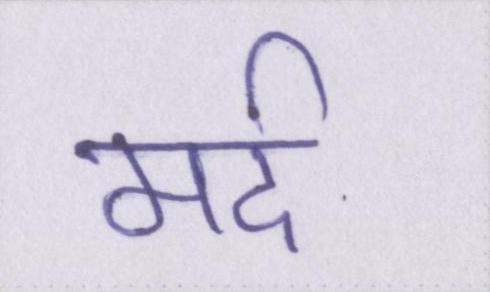 मर्द